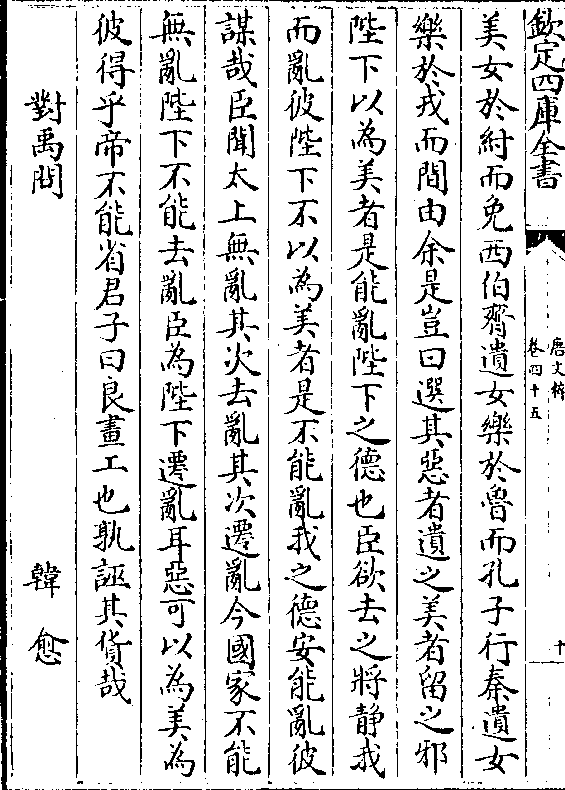 欽定四庫全書
唐文粹
卷四十五
十
美女於紂而免西伯齊遺女樂於魯而孔子行秦遺女
樂於戎而間由余是豈曰選其惡者遺之美者留之邪
陛下以為美者是能亂陛下之德也臣欲去之將静我
而亂彼陛下不以為美者是不能亂我之德安能亂彼
謀哉臣聞太上無亂其次去亂其次遷亂今國家不能
無亂陛下不能去亂臣為陛下遷亂耳惡可以為美為
彼得乎帝不能省君子曰良畫工也孰誣其貨哉
對禹問 韓愈